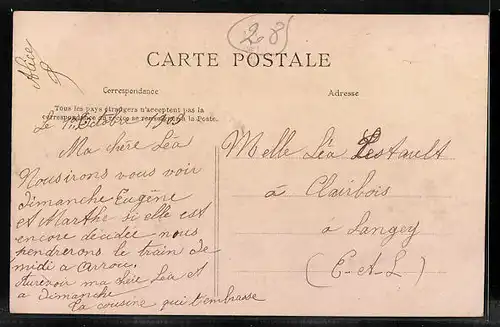 28
Alice
CARTE POSTALE
Correspondance
Adresse
Tous les pays étrangers n'acceptent pas la
correspondance au recto se renseignent à la Poste.
Le
Ma chère Léa
Nousirons vous voir
dimanche Eugène
et Marthe si elle est
encore décidée nous
prendrerons le train de
midi a arrou
Aurevoir ma chère Léa et
a Dimanche
Ta cousine qui t'embrasse
Melle Léa Lestault
à Clairbois
à Langey
(E-A-L)